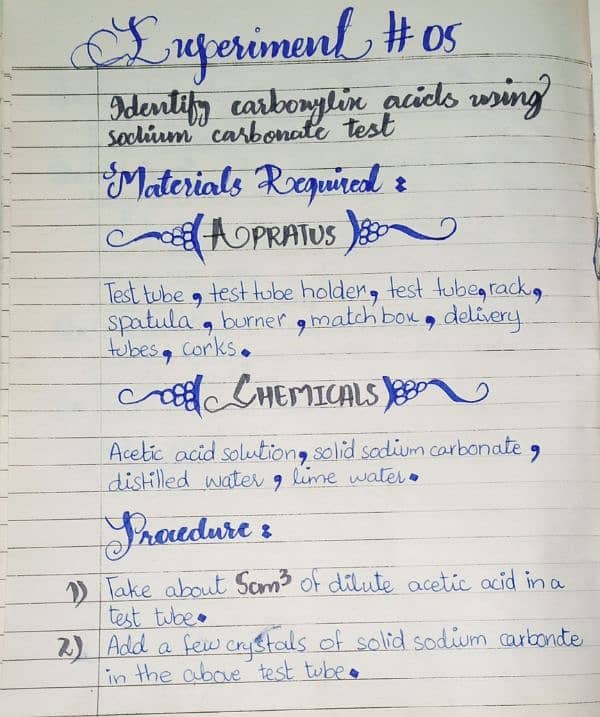 Experiment # 05
Identify carboxylix acids using
sodium carbonate test
Materials Required :
APRATUS
Test tube , test tube holder, test tube, rack,
spatula , burner , match box , delivery
tubes, corks.
CHEMICALS
Acetic acid solution, solid sodium carbonate ,
distilled water , lime water.
Procedure :
1) Take about 5cm³ of dilute acetic acid in a
test tube.
2) Add a few crystals of solid sodium carbonate
in the above test tube.